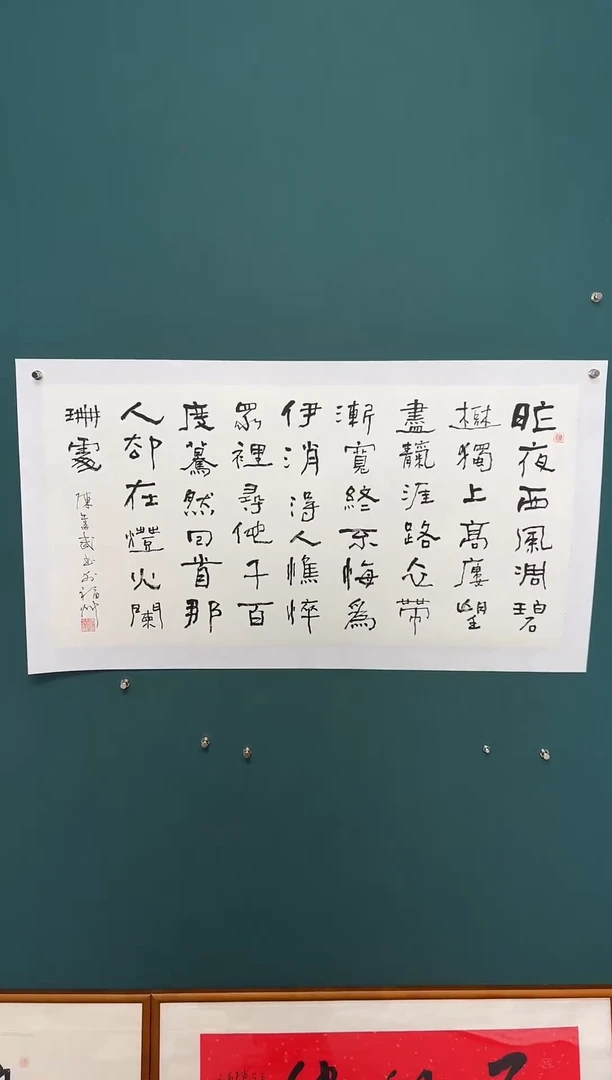 昨夜西風凋碧
樹獨上高廔望
盡靝涯路衣帶
漸寬終不悔爲
伊消得人憔悴
眾裡尋他千百
度驀然回首那
人卻在燈火闌
珊處
陳書於福州